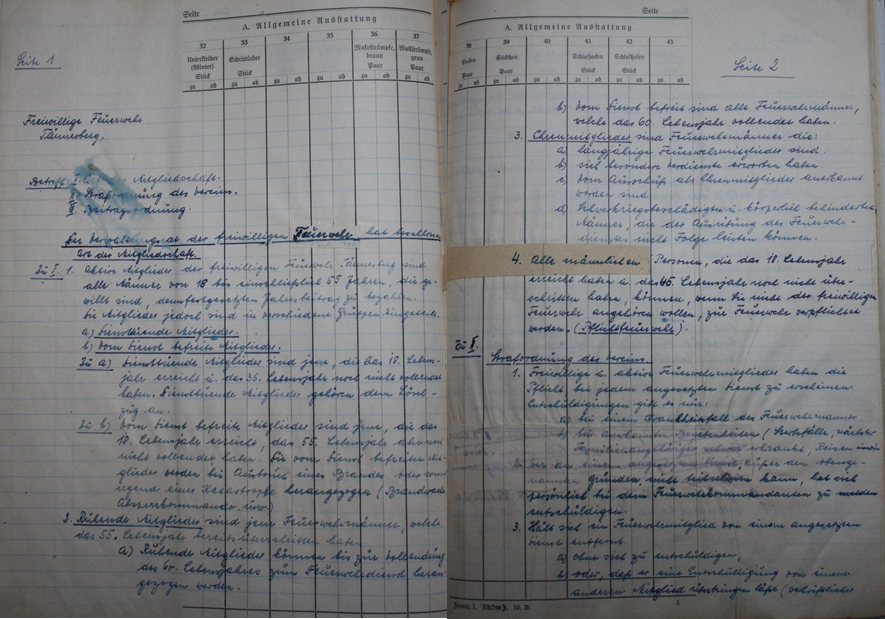 Seite
A. Allgemeine Ausstattung
32 33 34 35 36 37
Unterkleider (Winter) Stück
Schnürschuhe Stück
Makostrümpfe, braun Paar
Wollstrümpfe, grau Paar
zu ab zu ab zu ab zu ab zu ab zu ab
Seite 1
Freiwillige Feuerwehr
Tännesberg,
Betreff: I. Mitgliedschaft.
II Strafordnung des Vereins.
III. Beitragsordnung.
Der Verwaltungsrat der freiwilligen Feuerwehr hat beschlossen
Art der Mitgliedschaft.
Zu I. 1. Aktive Mitglieder der freiwilligen Feuerwehr Tännesberg sind
alle Männer von 18 bis einschließlich 55 Jahren, die ge-
willt sind, den festgesetzten Jahresbeitrag zu bezahlen.
Die Mitglieder jedoch sind in verschiedene Gruppen eingeteilt.
a) Diensttuende Mitglieder.
b) Vom Dienst befreite Mitglieder.
Zu a) Diensttuende Mitglieder sind jene, die das 18. Lebens-
jahr erreicht u. das 35. Lebensjahr noch nicht vollendet
haben. Diensttuende Mitglieder gehören dem Lösch-
zug an.
Zu b) Vom Dienst befreite Mitglieder sind jene, die das
18. Lebensjahr erreicht, das 55. Lebensjahr aber noch
nicht vollendet haben. Die vom Dienst befreiten Mit-
glieder werden bei Ausbruch eines Brandes oder sonst
irgend eines Katastrophe herangezogen (Brandwache
Absperrkommando usw)
2. Ruhende Mitglieder sind jene Feuerwehrmänner, welche
das 55. Lebensjahr bereits überschritten haben.
a) Ruhende Mitglieder können bis zur Vollendung
des 60. Lebensjahres zum Feuerwehrdienst heran-
gezogen werden.
Seite
A. Allgemeine Ausstattung
38 39 40 41 42 43
Socken Paar
Paar
Schlafjacken Stück
Schlafhosen Stück
ab zu ab zu ab zu ab zu ab zu ab
Seite 2
b) Vom Dienst befreit sind alle Feuerwehrmänner,
welche das 60. Lebensjahr vollendet haben.
3. Ehrenmitglieder sind Feuerwehrmänner die:
a) langjährige Feuerwehrmitglieder sind.
b) sich besondere Verdienste erworben haben.
c) vom Ausschuß als Ehrenmitglieder anerkannt
worden sind
d) Schwerkriegsbeschädigte u. körperlich behinderten
Männer, die der Ausübung des Feuerwehr-
dienstes nicht Folge leisten können.
4. Alle männlichen Personen, die das 18. Lebensjahr
erreicht haben u. das 45. Lebensjahr noch nicht über-
schritten haben, können, wenn Sie nicht der freiwilligen
Feuerwehr angehören wollen, zur Feuerwehr verpflichtet
werden. (Pflichtfeuerwehr)
Zu II. Strafordnung des Vereins.
1. Freiwillige u. aktive Feuerwehrmitglieder haben die
Pflicht bei jedem angesetzten Dienst zu erscheinen
Entschuldigungen gibt es nur:
a) bei einem Krankheitsfall des Feuerwehrmannes
b) bei (Sterbefälle, nächster
Familienangehöriger, Reisen
2. Wer an einem angesetzten Dienst, außer den obenge-
nannten Gründen, nicht teilnehmen kann, hat sich
persönlich bei dem Feuerwehrkommandanten zu
entschuldigen.
3. Hält sich ein Feuerwehrmitglied von einem angesetzten
Dienst entfernt
a) ohne sich zu entschuldigen,
b) oder, daß er eine Entschuldigung von einem
anderen Mitglied überbringen läßt (schriftlicher